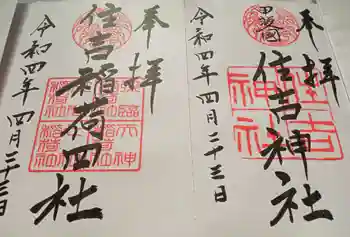 奉拝
住吉神社
令和四年四月二十三日
奉拝
住吉稲荷四社
令和四年四月二十三日